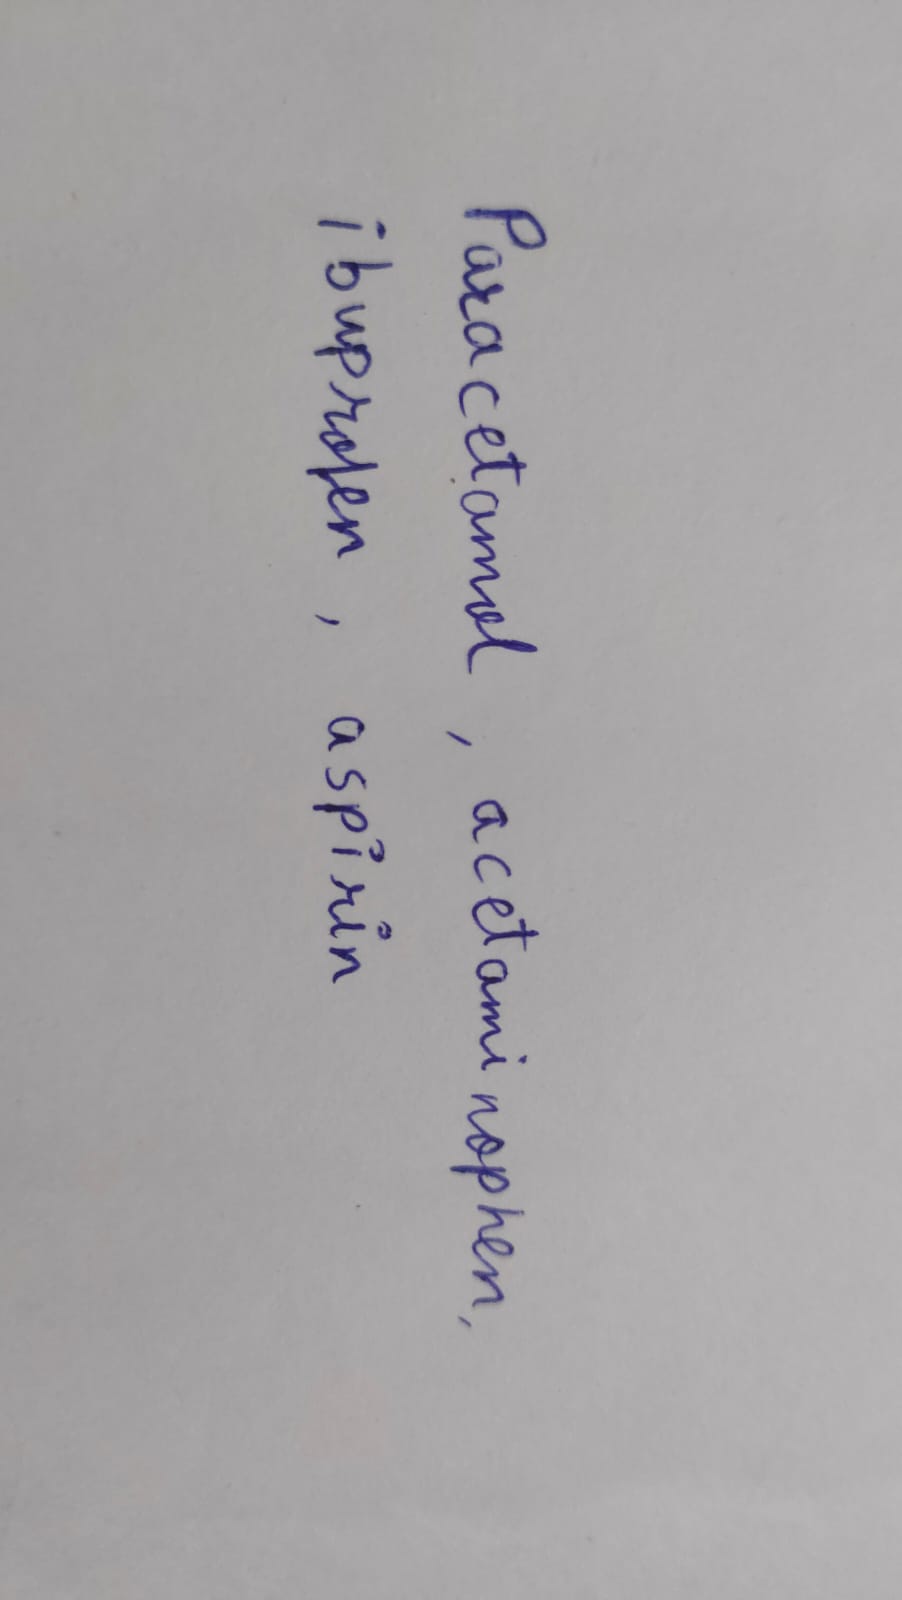 Paracetamol, acetaminophen,
ibuprofen, aspirin